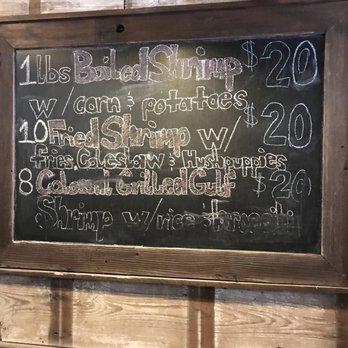 1lbs Boiled Shrimp $20
w/ corn & potatoes
10 Fried Shrimp w/ $20
fries, Coleslaw & Hushpuppies
8 Colossal Grilled Gulf $20
Shrimp w/rice & broccoli